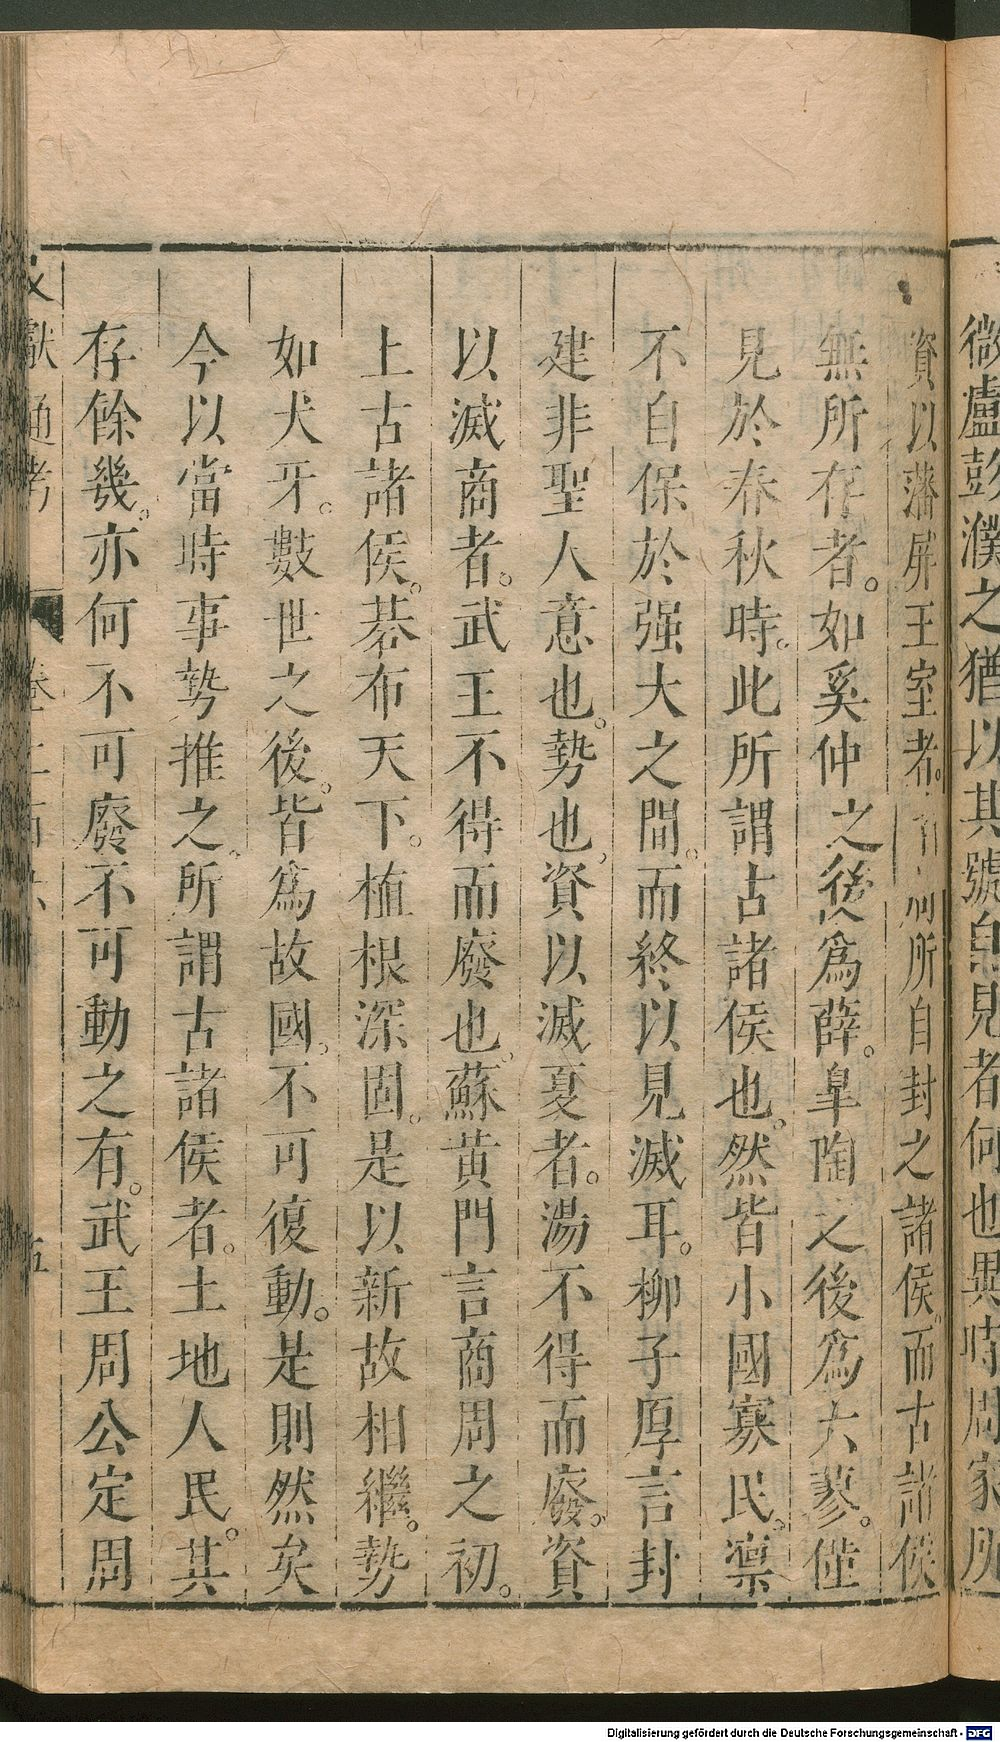 微盧彭濮之猶以其號自見者何也異時周家所
資以藩屏王室者。所自封之諸侯。而古諸侯
無所存者。如奚仲之後爲薛。皐陶之後爲六蓼。僅
見於春秋時。此所謂古諸侯也。然皆小國寡民。凛
不自保於强大之間。而終以見滅耳。柳子厚言封
建非聖人意也。勢也。資以滅夏者。湯不得而廢。資
以滅商者。武王不得而廢也。蘇黄門言商周之初。
上古諸侯。碁布天下。植根深固。是以新故相繼。勢
如犬牙。數世之後。皆爲故國。不可復動。是則然矣
今以當時事勢推之。所謂古諸侯者。土地人民。其
存餘幾。亦何不可廢不可動之有。武王周公定周
文獻通考 卷二百六 五
Digitalisierung gefördert durch die Deutsche Forschungsgemeinschaft - DFG